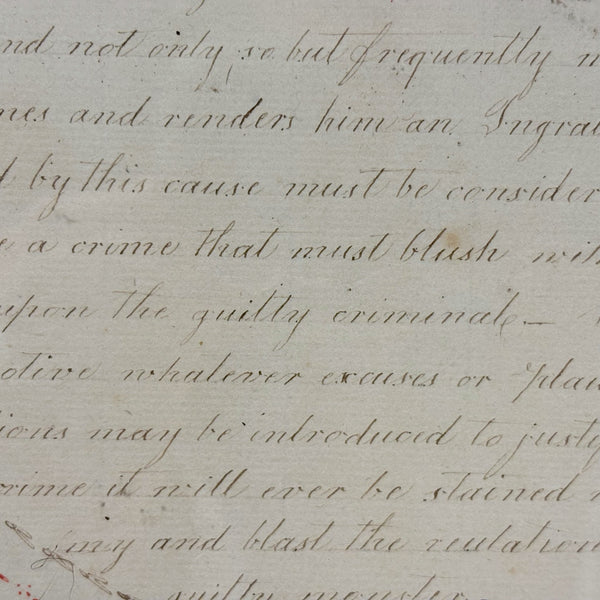 nd not only so but frequently
mes and renders him an Ingra
d by this cause must be consider
e a crime that must blush wit
upon the guilty criminal —
otive whatever excuses or plau
ions may be introduced to justif
rime it will ever be stained
my and blast the reulation
guilty monster